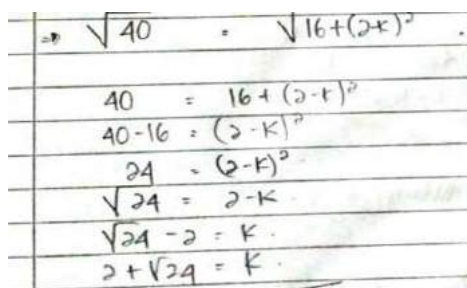 ⇒ √40 = √16+(2-k)²
40 = 16 + (2-k)²
40-16 = (2-k)²
24 = (2-k)²
√24 = 2-k
√24 - 2 = k.
2 + √24 = k.